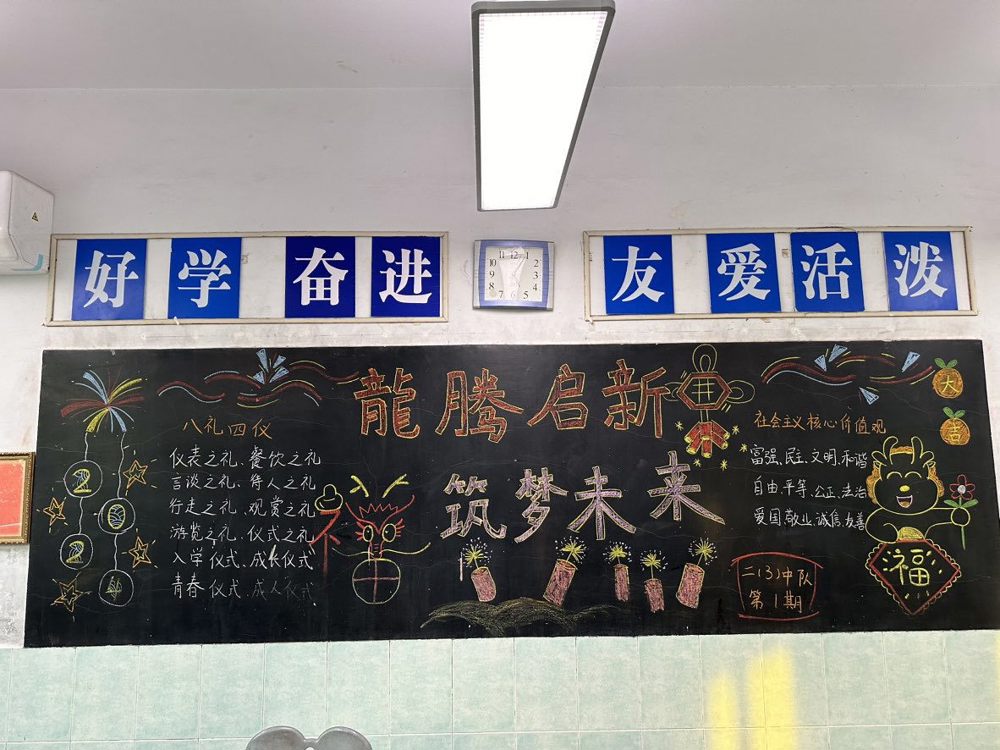 好学奋进
11 12 1
10 2
9 3
8 4
7 6 5
友爱活泼
龍腾启新
筑梦未来
2
0
2
4
八礼四仪
仪表之礼、餐饮之礼
言谈之礼、待人之礼
行走之礼、观赏之礼
游览之礼、仪式之礼
入学仪式、成长仪式
青春仪式、成人仪式
社会主义核心价值观
富强、民主、文明、和谐
自由、平等、公正、法治
爱国、敬业、诚信、友善
大
吉
福
二(3)中队
第1期